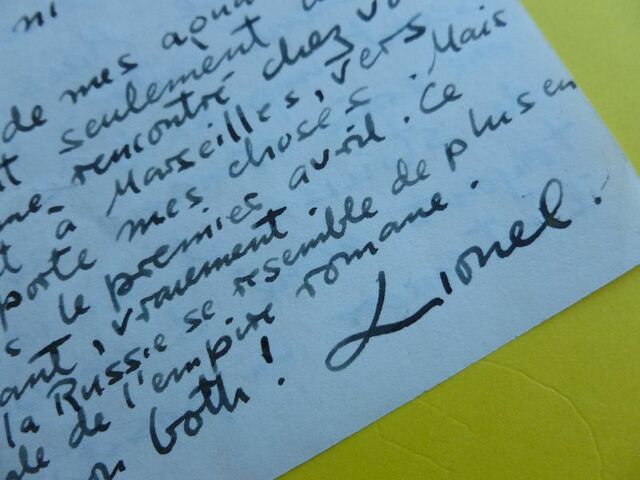 ni
de mes aqua
t seulement
me rencontré chez vo
t à Marseilles, vers
porte mes choses. Mais
s le premies avril. Ce
ant, vraiement.
la Russie se resemble de plus en
le de l'empire romane.
on both!
Lionel.